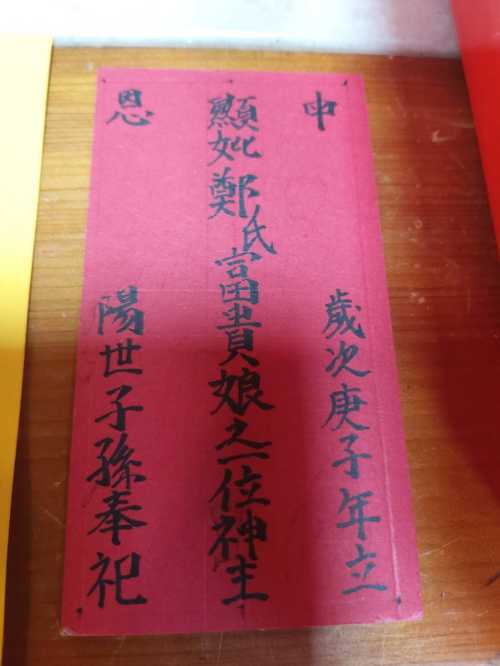 申
歲次庚子年立
顯妣鄭氏富貴娘之一位神主
恩
陽世子孫奉祀